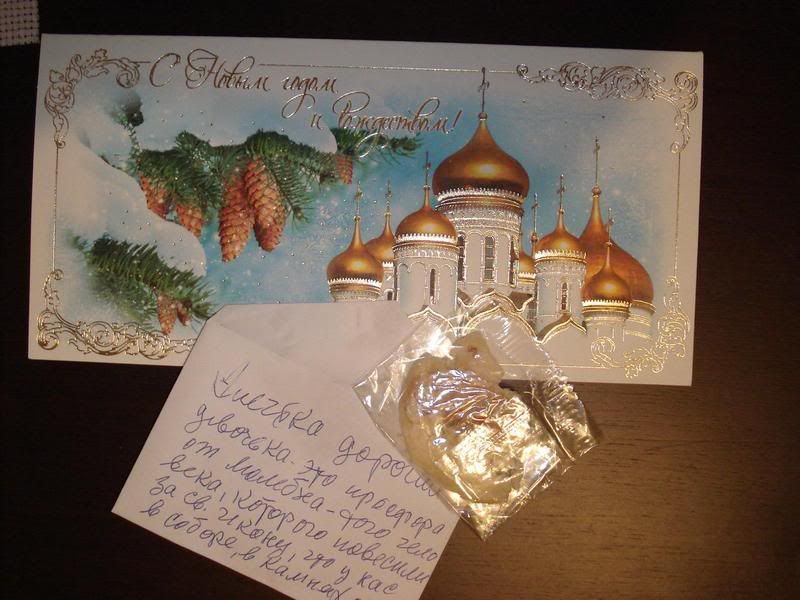 С Новым годом
и Рождеством!
Анечка дорогая
девочка - это просфора
от молебна - того чело
века, которого повесили
за св. Икону, что у нас
в соборе, в камнях